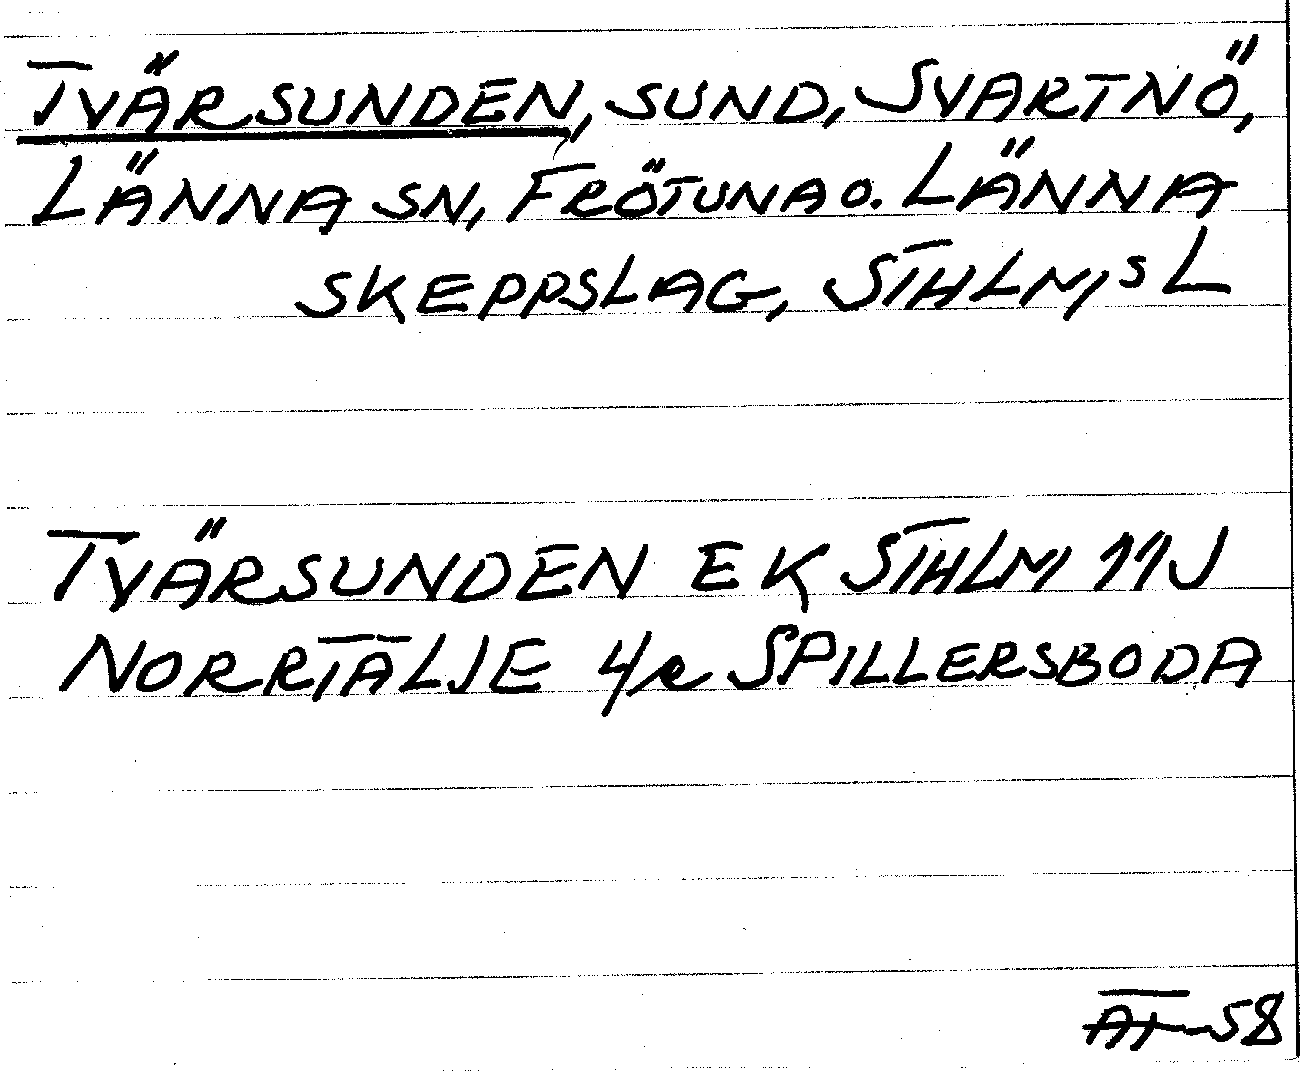 TVÄRSUNDEN, SUND, SVARTNÖ,
LÄNNA SN, FRÖTUNA O. LÄNNA
SKEPPSLAG, STHLMS L
TVÄRSUNDEN EK STHLM 11J
NORRTÄLJE 4/e SPILLERSBODA
AT-58